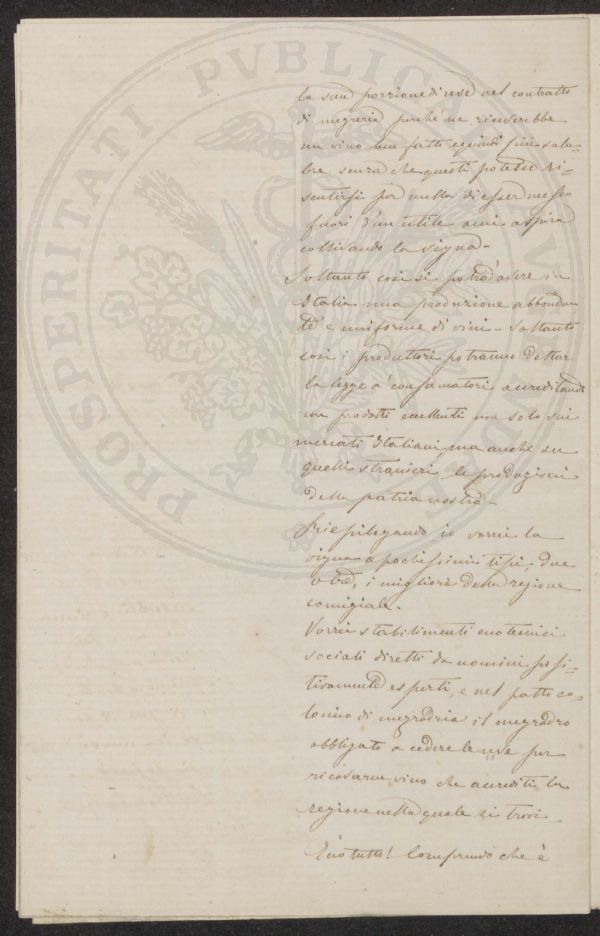 la sua porzione di uve nel contratto
di mezzeria purché ne ricaverebbe
un vino ben fatto e quindi più salu-
bre senza che questi potesse ri-
sentirsi per nulla di esser messo
fuori d'un utile a cui aspira
coltivando la vigna -
Soltanto così si potrà avere in
Italia una produzione abbondan
te e uniforme di vini - Soltanto
così i produttori potranno dettar
la legge a' consumatori accreditando
con prodotti eccellenti non solo sui
mercati Italiani, ma anche su
quelli stranieri le produzioni
della patria nostra -
Riepilogando io vorrei la
vigna a pochissimi tipi, due
o tre, i migliori della regione
Vorrei stabilimenti enotecnici
sociali diretti da uomini posi-
tivamente esperti, e nel patto co-
lonico di mezzadria il mezzadro
obbligato a cedere le uve per
ricavarne vino che accrediti la
regione nella quale si trovi.
È io tutto! Comprendo che è
PROSPERITATI PVBLICAE